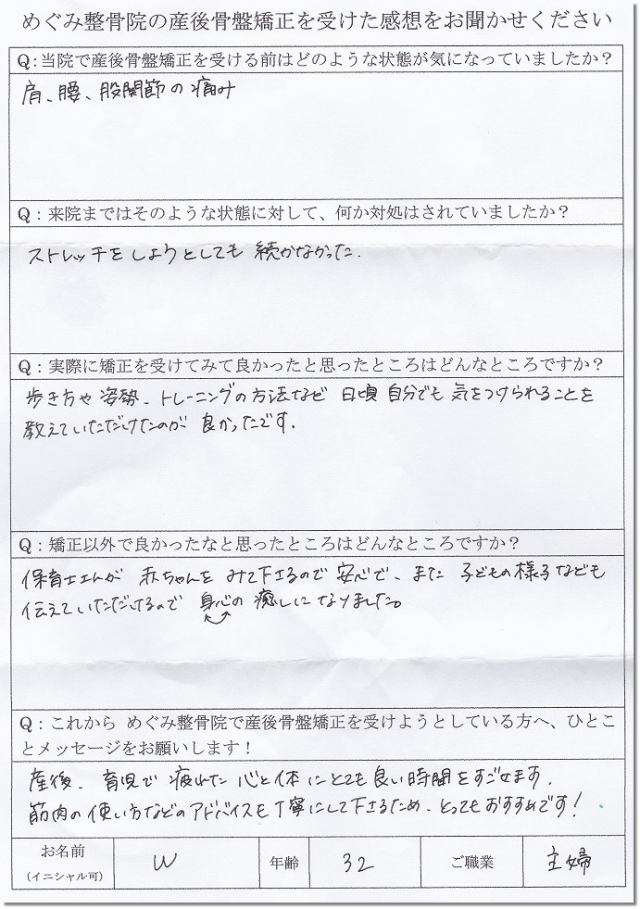 めぐみ整骨院の産後骨盤矯正を受けた感想をお聞かせください
Q:当院で産後骨盤矯正を受ける前はどのような状態が気になっていましたか？
肩、腰、股関節の痛み
Q：来院まではそのような状態に対して、何か対処はされていましたか？
ストレッチをしようとしても続かなかった.
Q：実際に矯正を受けてみて良かったと思ったところはどんなところですか？
歩き方や姿勢、トレーニングの方法など 日頃自分でも気をつけられることを
教えていただけたのが 良かったです.
Q：矯正以外で良かったなと思ったところはどんなところですか？
保育士さんが 赤ちゃんをみて下さるので 安心で、また子どもの様子なども
伝えていただけるので 身心の癒しになりました。
Q：これから めぐみ整骨院で産後骨盤矯正を受けようとしている方へ、ひとこ
とメッセージをお願いします！
産後、育児で疲れた心と体にとても良い時間をすごせます.
筋肉の使い方などのアドバイスも丁寧にして下さるため、とってもおすすめです！
お名前 W 年齢 32 ご職業 主婦
(イニシャル可)